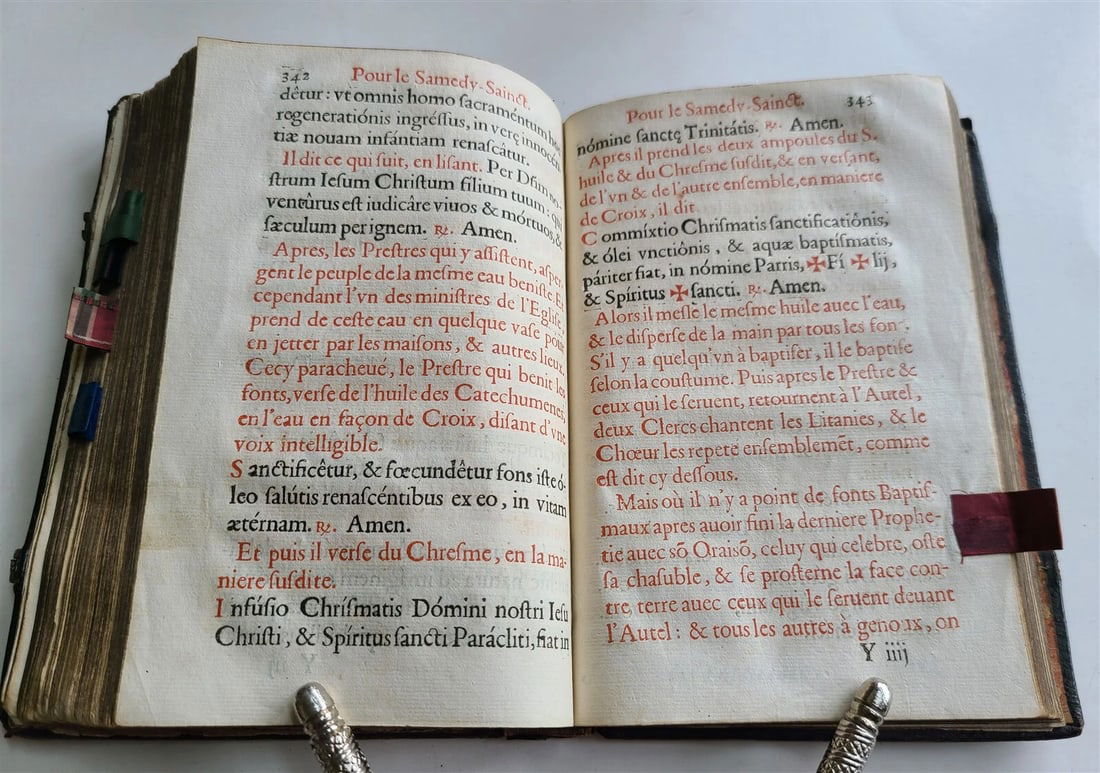 342 Pour le Samedy-Sainct.
dêtur : vt omnis homo ſacraméntum hoc
rogenerationis ingréſſus, in verę innocén
tiæ nouam infántiam renaſcâtur.
Il dit ce qui ſuit, en liſant. Per Dñm no-
ſtrum Ieſum Chriſtum filium tuum : qui
ventûrus eſt iudicâre viuos & mórtuos, &
ſæculum per ignem. ℞. Amen.
Apres, les Preſtres qui y aſſiſtent, aſper
gent le peuple de la meſme eau beniſte. Et
cependant l'vn des miniſtres de l'Egliſe,
prend de ceſte eau en quelque vaſe pour
en jetter par les maiſons, & autres lieux.
Cecy paracheué, le Preſtre qui benit les
fonts, verſe de l'huile des Catechumenes
en l'eau en façon de Croix, diſant d'vne
voix intelligible.
Sanctificêtur, & fœcundêtur fons iſte ó-
leo ſalútis renaſcéntibus ex eo, in vitam
ætérnam. ℞. Amen.
Et puis il verſe du Chreſme, en la ma-
niere ſuſdite.
Infúſio Chríſmatis Dómini noſtri Ieſu
Chriſti, & Spíritus ſancti Parácliti, fiat in
Pour le Samedy-Sainct. 343
nómine ſanctę Trinitátis. ℞. Amen.
Apres il prend les deux ampoules du S.
huile & du Chreſme ſuſdit, & en verſant,
de l'vn & de l'autre enſemble, en maniere
de Croix, il dit
Commíxtio Chríſmatis ſanctificatiónis,
& ólei vnctiónis, & aquæ baptiſmatis,
páriter fiat, in nómine Parris, ✠ Fí ✠ lij,
& Spíritus ✠ ſancti. ℞. Amen.
Alors il meſle le meſme huile auec l'eau,
& le diſperſe de la main par tous les fon
S'il y a quelqu'vn à baptiſer, il le baptiſe
ſelon la couſtume. Puis apres le Preſtre &
ceux qui le ſeruent, retournent à l'Autel,
deux Clercs chantent les Litanies, & le
Chœur les repete enſemblemẽt, comme
eſt dit cy deſſous.
Mais où il n'y a point de fonts Baptiſ-
maux apres auoir fini la derniere Prophe-
tie auec sõ Oraisõ, celuy qui celebre, oſte
ſa chaſuble, & ſe proſterne la face con-
tre, terre auec ceux qui le ſeruent deuant
l'Autel : & tous les autres à genoux, on
Y iiij